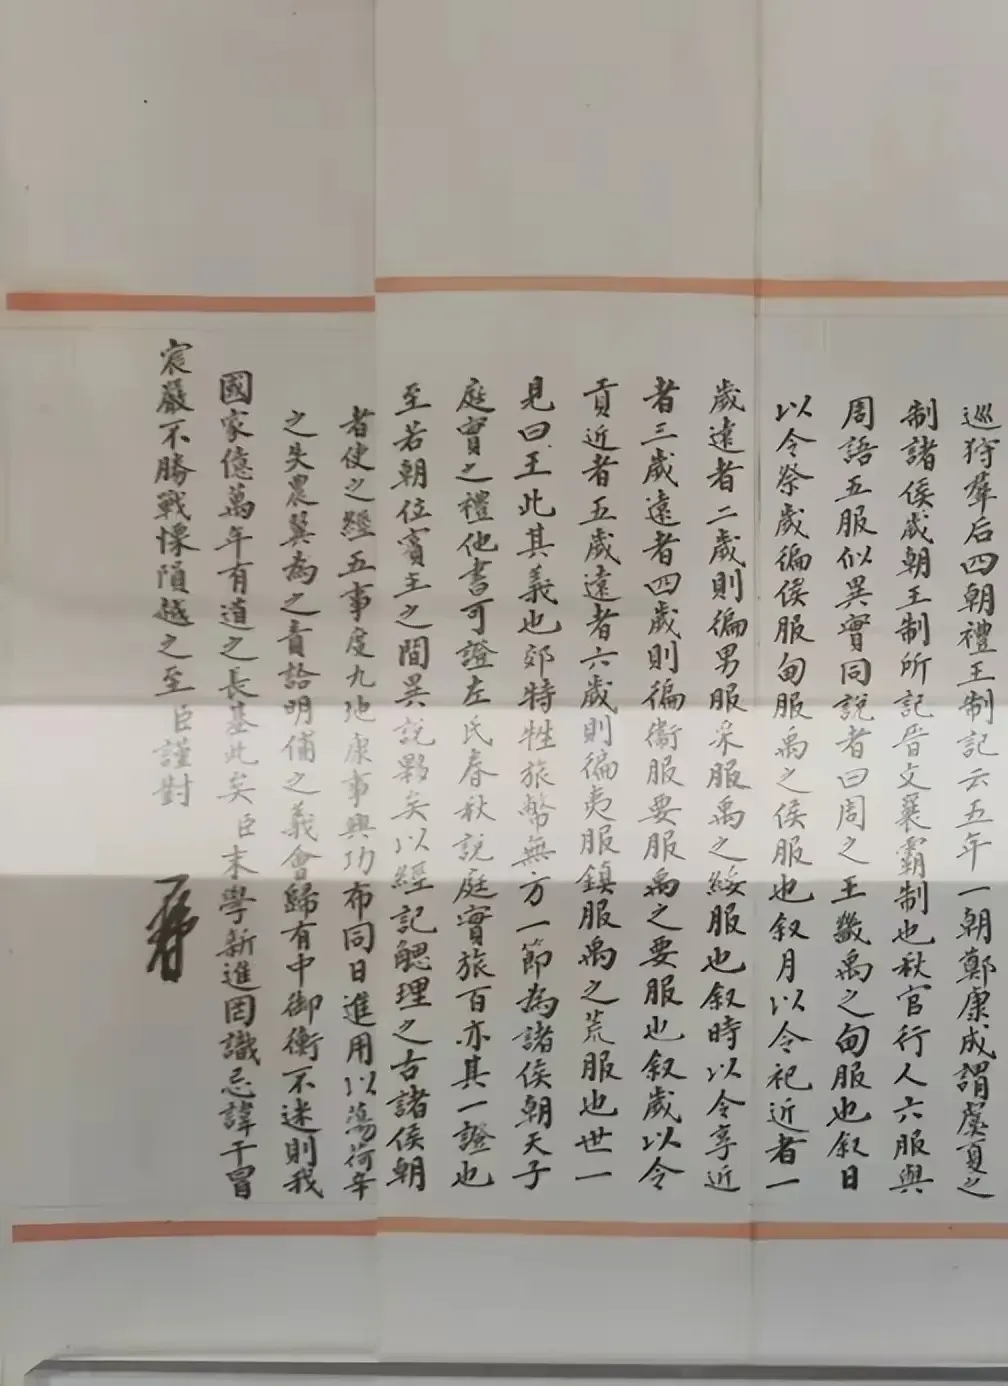 巡狩羣后四朝禮王制記云五年一朝鄭康成謂虞夏之
制諸侯歲朝王制所記晉文襄霸制也秋官行人六服與
周語五服似異實同說者曰周之王畿禹之甸服也叙日
以令祭歲徧侯服甸服禹之侯服也叙月以令祀近者一
歲遠者二歲則徧男服采服禹之綏服也叙時以令享近
者三歲遠者四歲則徧衞服要服禹之要服也叙歲以令
貢近者五歲遠者六歲則徧夷服鎮服禹之荒服也世一
見曰王此其義也郊特牲旅幣無方一節為諸侯朝天子
庭實之禮他書可證左氏春秋說庭實旅百亦其一證也
至若朝位賓主之間異說夥矣以經記䚡理之古諸侯朝
者使之經五事度九地康事興功布同日進用以蕩荷辛
之失農巽為之責詥明備之義會歸有中御衡不迷則我
國家億萬年有道之長基此矣臣末學新進罔識忌諱干冒
宸嚴不勝戰慄隕越之至臣謹對